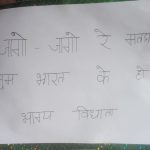 जागो - जागो रे मतदा
तुम भारत के हो
भाग्य विधाता